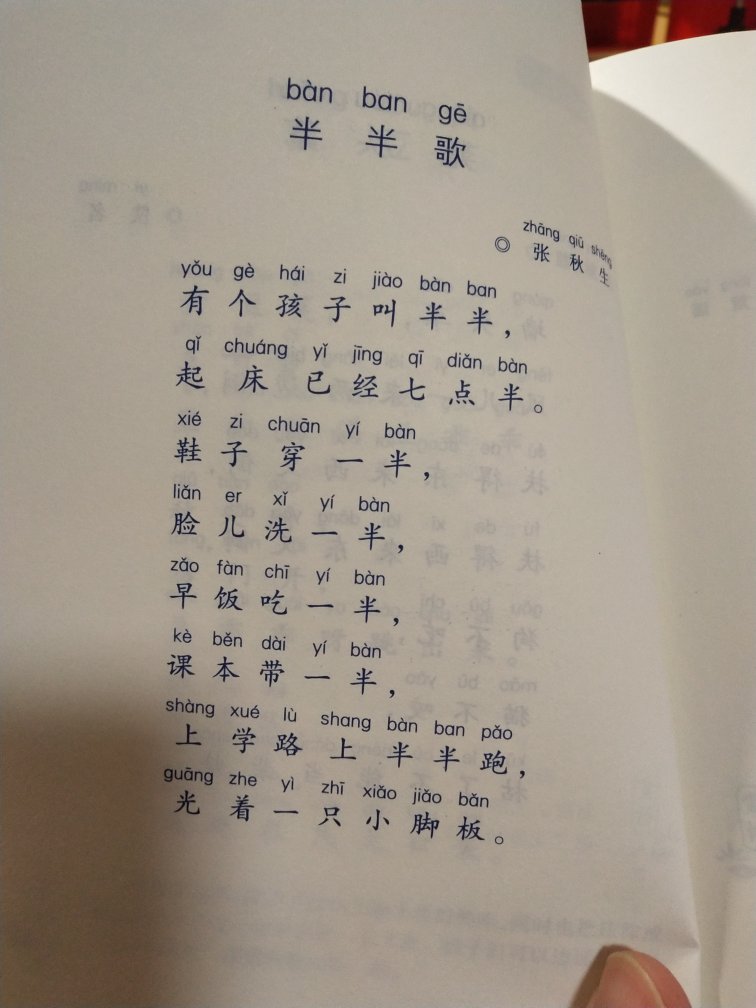 bàn ban gē
半半歌
zhāng qiū shēng
◎ 张秋生
yǒu gè hái zi jiào bàn ban
有个孩子叫半半，
qǐ chuáng yǐ jīng qī diǎn bàn
起床已经七点半。
xié zi chuān yí bàn
鞋子穿一半，
liǎn er xǐ yí bàn
脸儿洗一半，
zǎo fàn chī yí bàn
早饭吃一半，
kè běn dài yí bàn
课本带一半，
shàng xué lù shang bàn ban pǎo
上学路上半半跑，
guāng zhe yì zhī xiǎo jiǎo bǎn
光着一只小脚板。